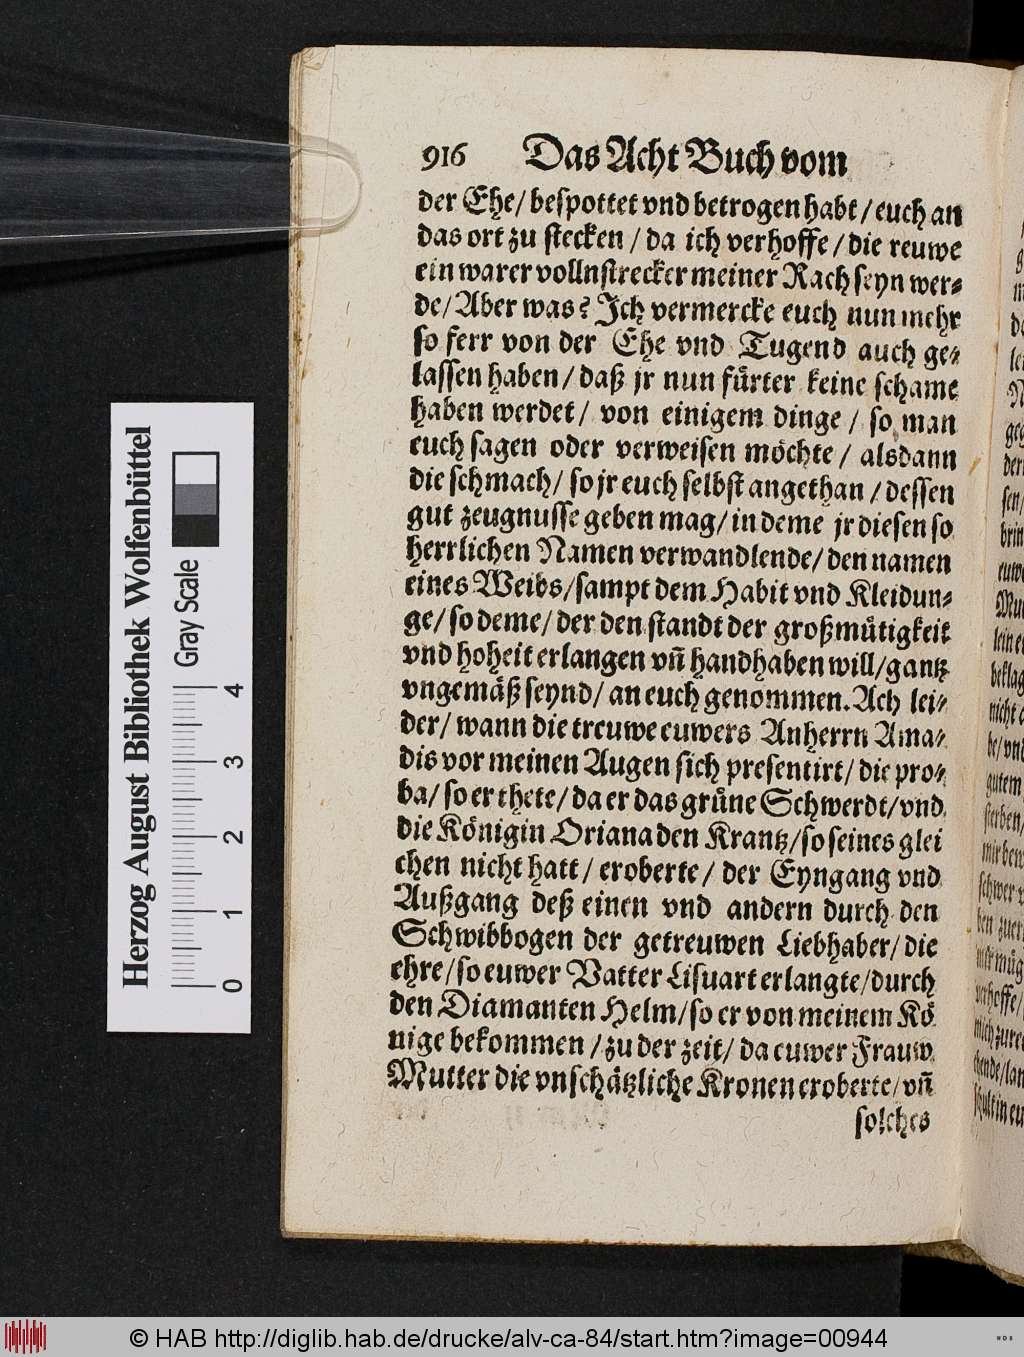 916 Das Acht Buch vom
der Ehe/ bespottet vnd betrogen habt/ euch an
das ort zu stecken / da ich verhoffe / die reuwe
ein warer vollnstrecker meiner Rach seyn wer⸗
de/ Aber was? Ich vermercke euch nun mehr
so ferr von der Ehe vnd Tugend auch ge⸗
lassen haben / daß jr nun fürter keine schame
haben werdet/ von einigem dinge / so man
euch sagen oder verweisen möchte / alsdann
die schmach/ so jr euch selbst angethan / dessen
gut zeugnusse geben mag/ in deme jr diesen so
herrlichen Namen verwandlende/ den namen
eines Weibs/ sampt dem Habit vnd Kleidun⸗
ge/ so deme/ der den standt der großmütigkeit
vnd hoheit erlangen vñ handhaben will/ gantz
vngemäß seynd/ an euch genommen. Ach lei⸗
der/ wann die treuwe euwers Anherrn Ama⸗
dis vor meinen Augen sich presentirt/ die pro⸗
ba/ so er thete/ da er das grüne Schwerdt/ vnd
die Königin Oriana den Krantz/ so seines glei
chen nicht hatt/ eroberte/ der Eyngang vnd
Außgang deß einen vnd andern durch den
Schwibbogen der getreuwen Liebhaber/ die
ehre/ so euwer Vatter Lisuart erlangte/ durch
den Diamanten Helm/ so er von meinem Kö
nige bekommen / zu der zeit/ da euwer Frauw
Mutter die vnschätzliche Kronen eroberte/ vñ
solches
Herzog August Bibliothek Wolfenbüttel
Gray Scale
0 1 2 3 4
© HAB http://diglib.hab.de/drucke/alv-ca-84/start.htm?image=00944